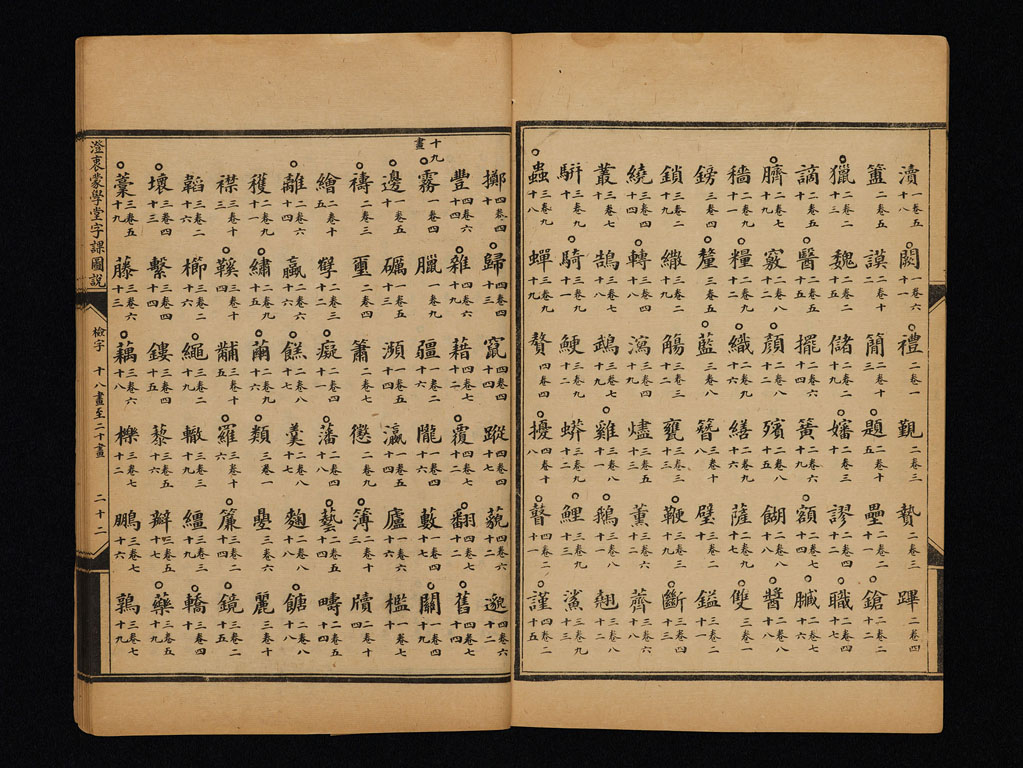 瀆一卷五十八 闕一卷六十一 禮二卷一 覲二卷三 贄二卷三 蹕二卷四
簠二卷五 謨二卷十 簡二卷十三 題二卷十五 壘二卷二十一 鎗二卷二十二
獵二卷二十三 魏二卷四十五 儲二卷四十 嬸二卷四十 謬二卷四十二 職二卷四十七
謫二卷五十四 醫二卷五十五 擺二卷六十四 簧二卷六十九 額二卷七十三 臟二卷七十四
臍二卷七十九 竅二卷八十二 顏二卷八十二 殯二卷八十五 餬二卷八十八 醬二卷八十八
穡二卷九十一 糧二卷九十一 織二卷九十六 繕二卷九十六 薩二卷九十七 雙三卷一
鎊三卷四 釐三卷五 藍三卷八 簪三卷八 璧三卷二十一 鎰三卷二十一
鎖三卷二十九 繖三卷二十九 觴三卷三十二 甕三卷三十三 鞭三卷三十九 斷三卷四十三
繞三卷四十四 轉三卷四十八 瀉三卷四十九 燼三卷五十四 薰三卷六十一 薺三卷六十八
叢三卷七十 鵠三卷七十八 鵡三卷七十九 雞三卷八十一 鵝三卷八十一 翹三卷八十一
駢三卷九十 騎三卷九十一 鯁三卷九十二 蟒三卷九十二 鯉三卷九十三 鯊三卷九十三
蟲三卷九十 蟬三卷九十九 贅四卷四 擾四卷十八 瞽四卷二十一 謹四卷二十五
擲四卷四十 歸四卷四十三 竄四卷四十四 蹤四卷四十七 藐四卷六十二 邈四卷六十二
豐四卷六十四 雜四卷四十九 藉四卷二十二 覆四卷七十二 翻四卷七十二 舊四卷八十四
十九畫
霧一卷四 臘一卷九 疆一卷二十二 隴一卷二十六 藪一卷四十七 關一卷四十八
邊一卷五十 礪一卷四十三 瀕一卷五十四 瀛一卷五十四 廬一卷六十六 檻一卷七十四
禱二卷三 璽二卷四 簫二卷七 懲二卷九 簿二卷十三 牘二卷十四
繪二卷十五 孽二卷三十二 癡二卷四十一 藩二卷四十八 藝二卷五十四 疇二卷五十四
離二卷六十四 羸二卷六十四 餻二卷八十七 羹二卷八十七 麴二卷八十八 餹二卷八十八
穫二卷九十一 繡二卷九十五 繭二卷九十六 類三卷一 疊三卷六 麗三卷十
襟三卷十三 鞵三卷十四 黼三卷十四 羅三卷十六 簾三卷二十四 鏡三卷二十四
韜三卷二十六 櫛三卷二十六 繩三卷二十九 轍三卷三十二 繮三卷三十二 轎三卷四十
壞三卷四十三 繫三卷四十四 鏤三卷四十五 藜三卷五十六 辮三卷五十四 藥三卷五十九
藁三卷五十九 藤三卷六十三 藕三卷六十八 櫟三卷七十二 鵬三卷七十六 鶉三卷七十九
澄衷蒙學堂字課圖說 檢字 十八畫至二十畫 二十二